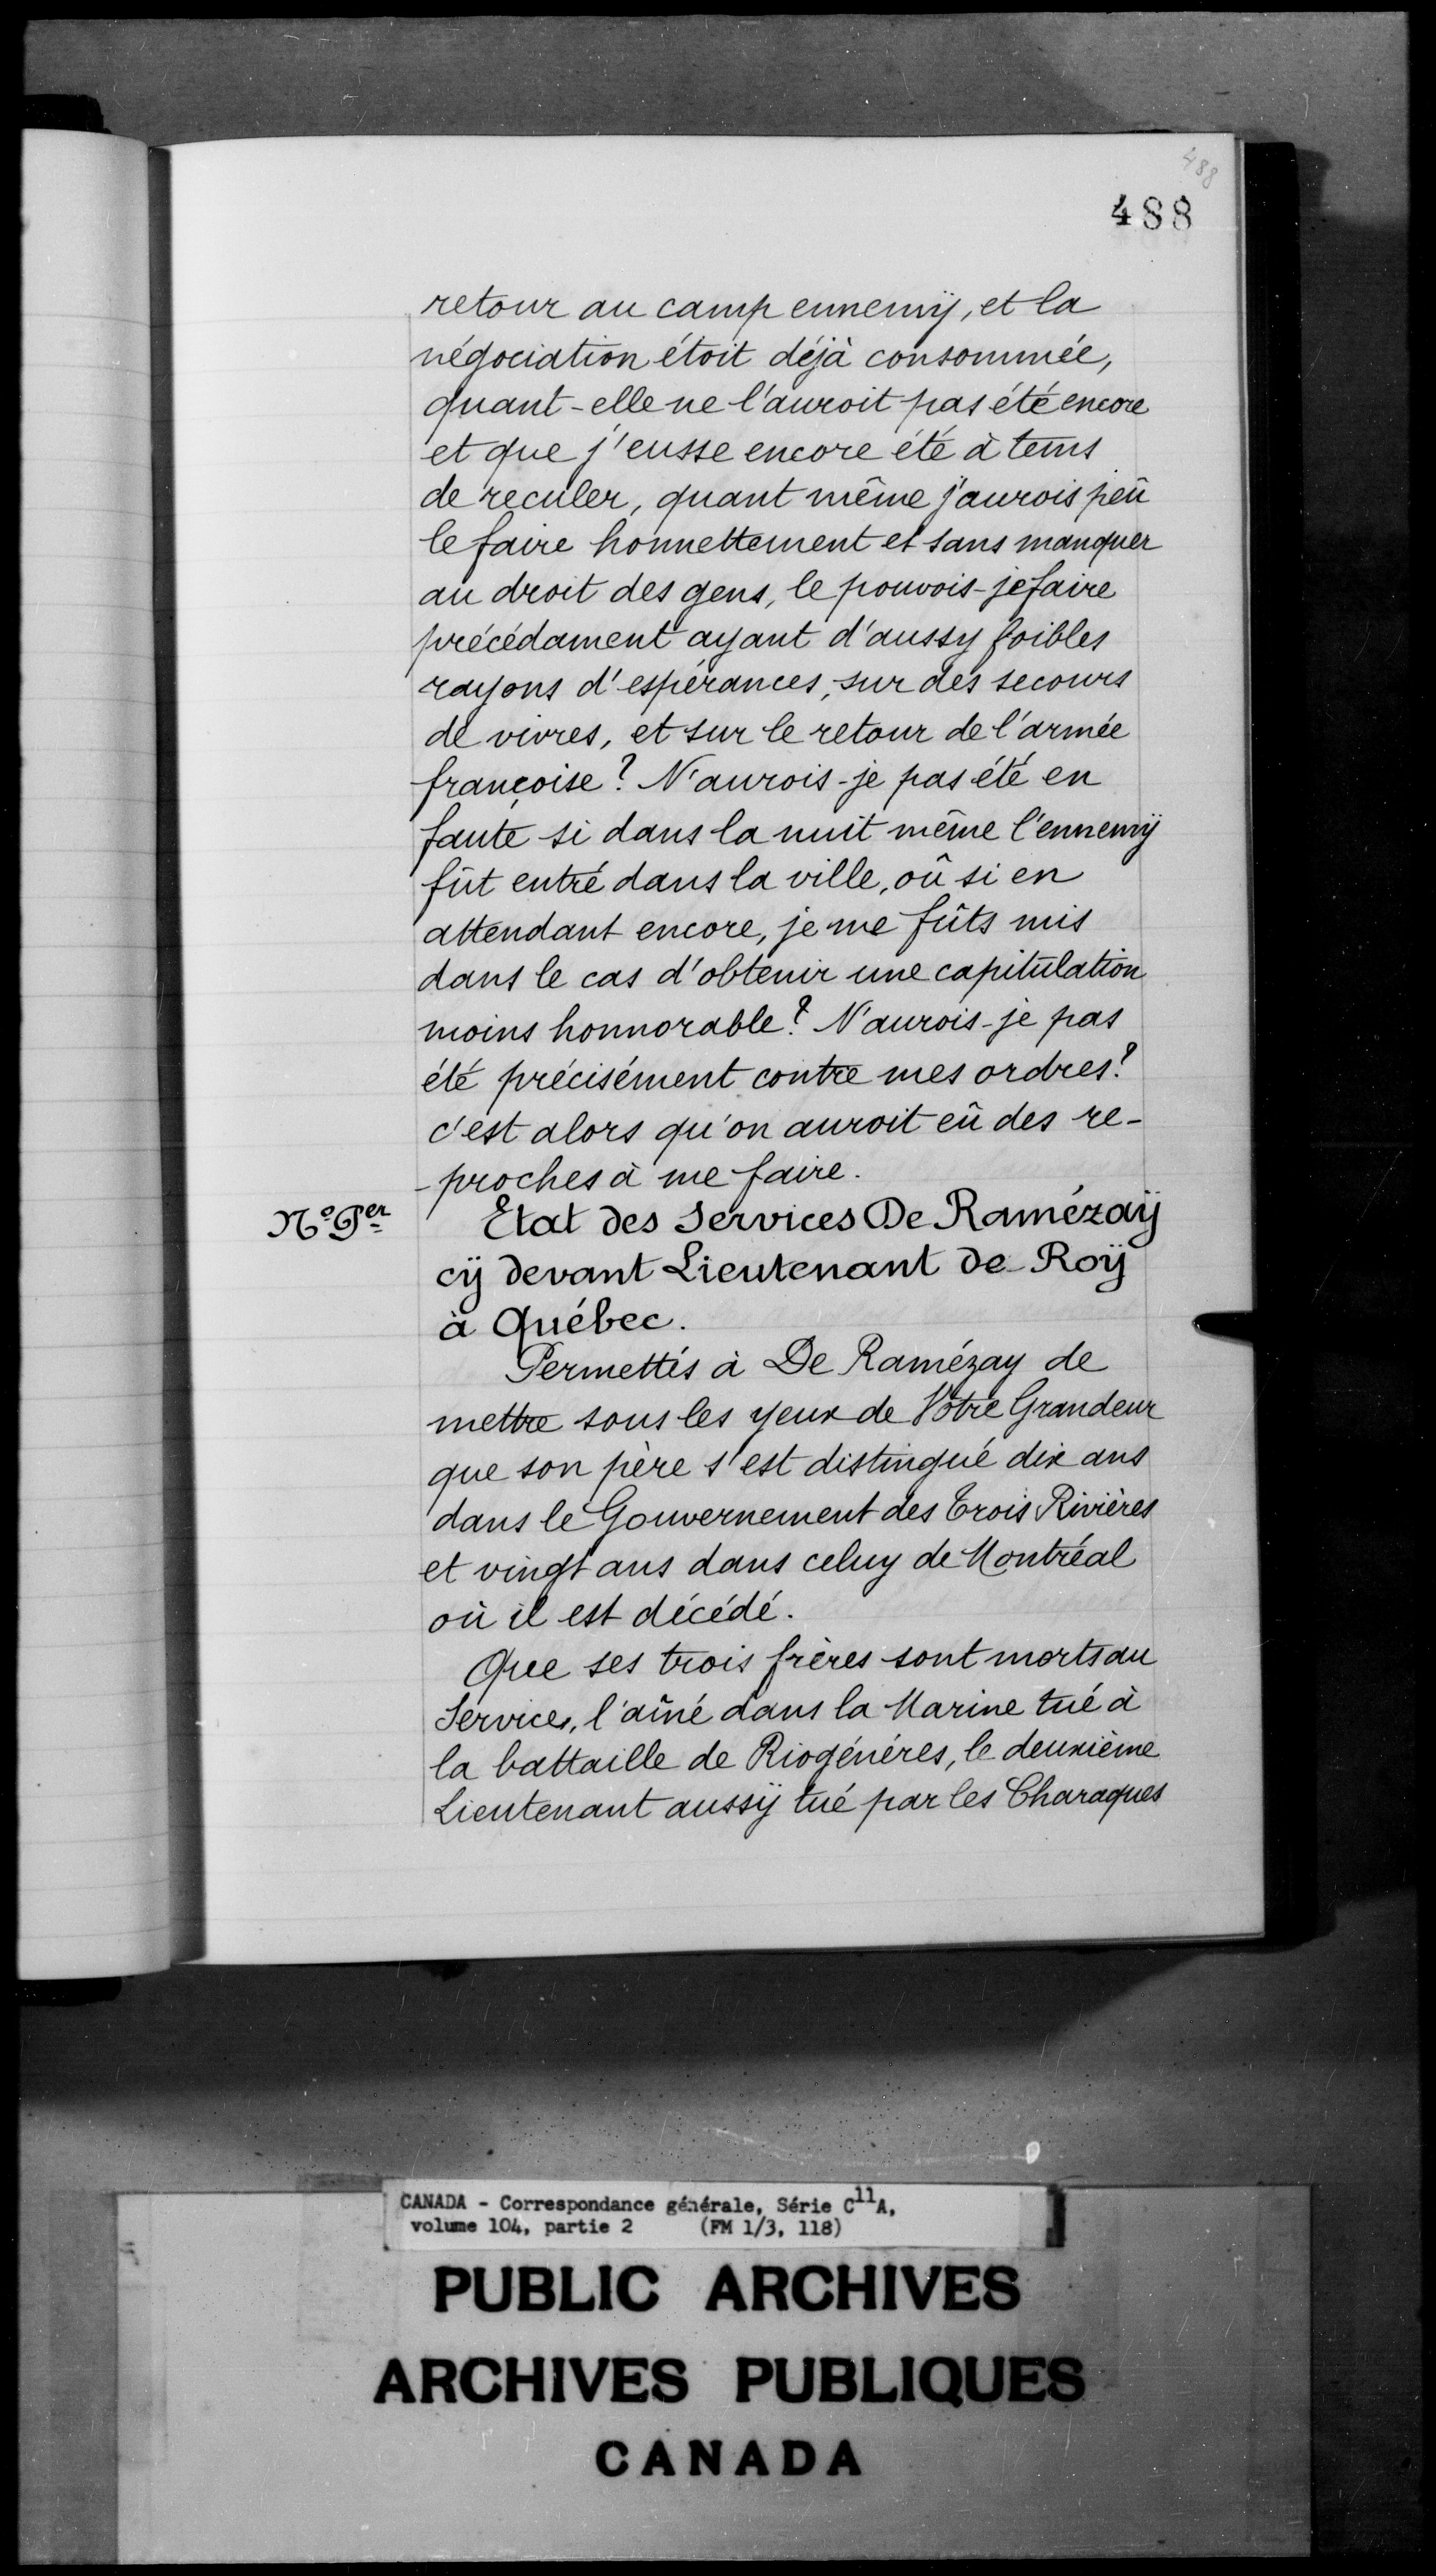 488
488
retour au camp ennemÿ, et la
négociation étoit déjà consommée,
quant-elle ne l'auroit pas été encore
et que j'eusse encore été à tems
de reculer, quant même j'aurois peû
le faire honnettement et sans manquer
au droit des gens, le pouvois-je faire
précédament ayant d'aussy foibles
rayons d'espérances, sur des secours
de vivres, et sur le retour de l'armée
françoise? N'aurois-je pas été en
faute si dans la nuit même l'ennemÿ
fût entré dans la ville, oû si en
attendant encore, je me fûts mis
dans le cas d'obtenir une capitulation
moins honnorable? N'aurois-je pas
été précisément contre mes ordres?
c'est alors qu'on auroit eû des re-
-proches à me faire.
No Per Etat des Services De Ramézaÿ
cÿ devant Lieutenant de Roÿ
à Québec.
Permettés à De Ramézay de
mettre sous les yeux de Votre Grandeur
que son père s'est distingué dix ans
dans le Gouvernement des Trois Rivières
et vingt ans dans celuy de Montréal
où il est décédé.
Que ses trois frères sont morts au
Service, l'aîné dans la Marine tué à
la battaille de Riogénéres, le deuxième
Lieutenant aussÿ tué par les Charaques
CANADA - Correspondance générale, Série C11A,
volume 104, partie 2 (FM 1/3, 118)
PUBLIC ARCHIVES
ARCHIVES PUBLIQUES
CANADA